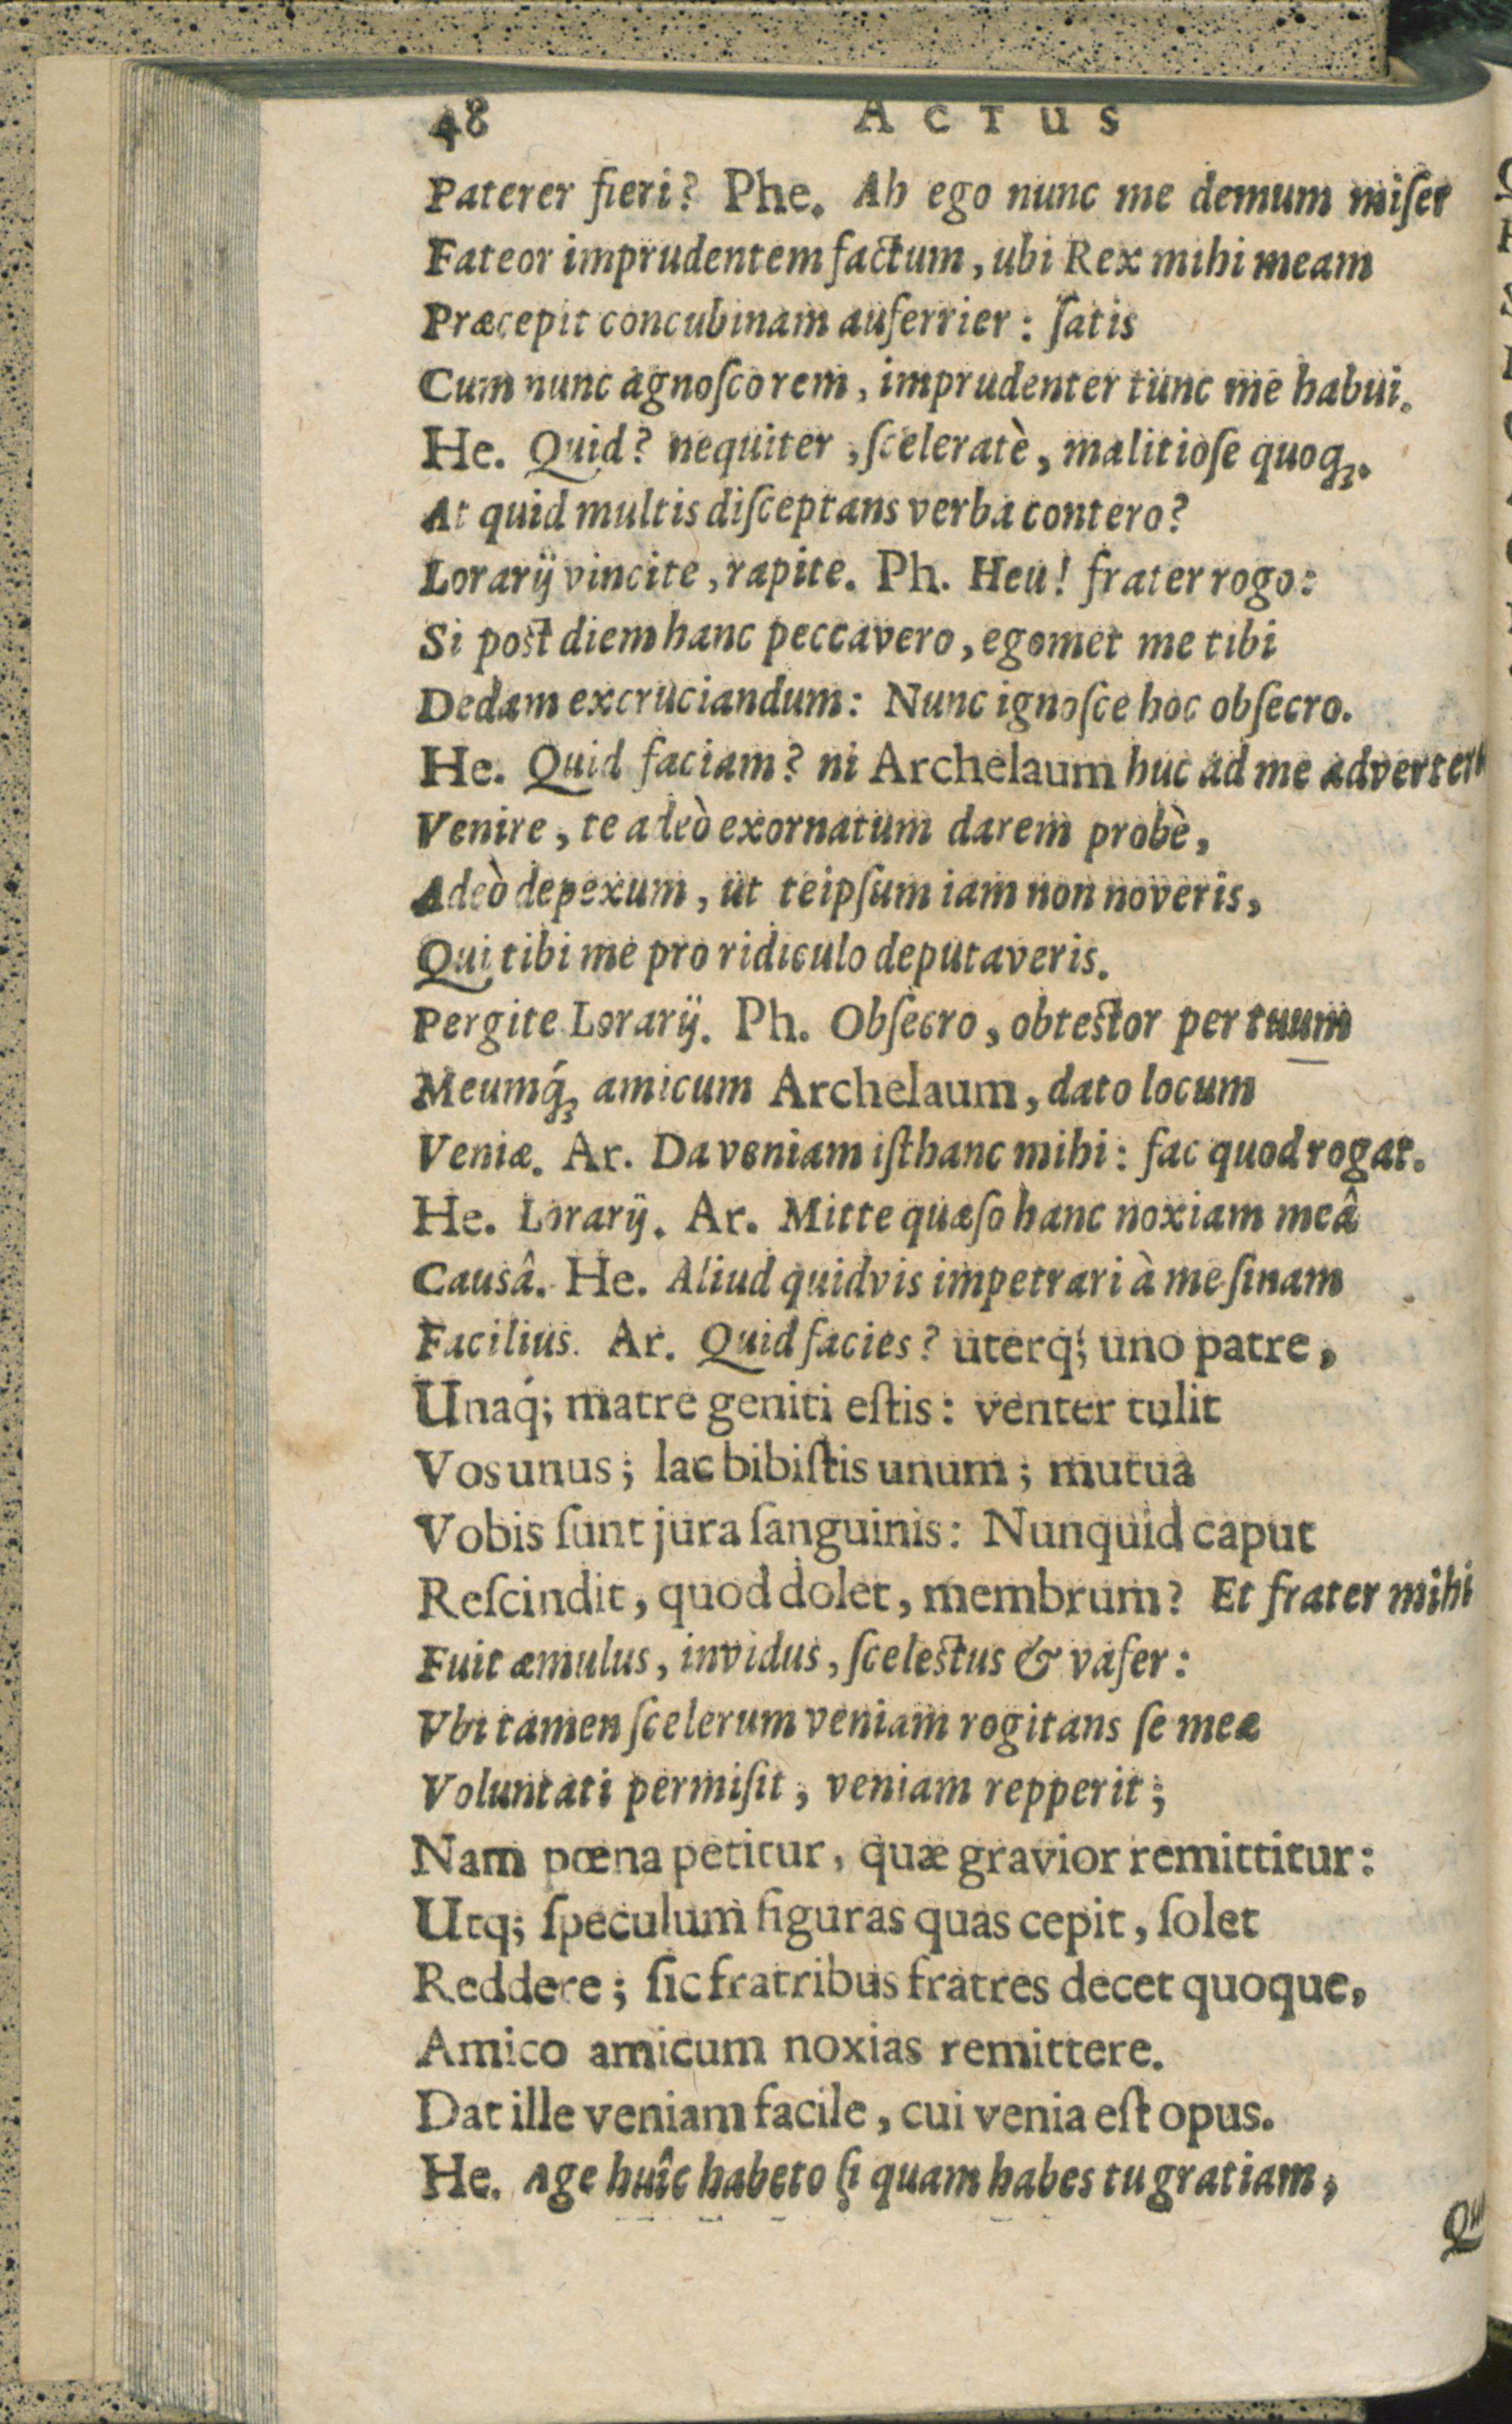 48 ACTUS
Paterer fieri? Phe. Ah ego nunc me demum miſer
Fateor imprudentem factum, ubi Rex mihi meam
Præcepit concubinam auferrier: ſatis
Cum nunc agnoſco rem, imprudenter tunc me habui.
He. Quid? nequiter, ſceleratè, malitioſe quoq;.
At quid multis diſceptans verba contero?
Lorarij vincite, rapite. Ph. Heu! frater rogo:
Si poſt diem hanc peccavero, egomet me tibi
Dedam excruciandum: Nunc ignoſce hoc obſecro.
He. Quid faciam? ni Archelaum huc ad me
Venire, te adeò exornatum darem probè,
Adeò depexum, ut teipſum iam non noveris,
Qui tibi me pro ridiculo deputaveris.
Pergite Lorarij. Ph. Obſecro, obteſtor per tuum
Meumq́; amicum Archelaum, dato locum
Veniæ. Ar. Da veniam iſthanc mihi: fac quod rogat.
He. Lorarij. Ar. Mitte quæſo hanc noxiam meâ
Causâ. He. Aliud quidvis impetrari à me ſinam
Facilius. Ar. Quid facies? uterq́; uno patre,
Unaq́; matre geniti eſtis: venter tulit
Vos unus; lac bibiſtis unum; mutua
Vobis ſunt jura ſanguinis: Nunquid caput
Reſcindit, quod dolet, membrum? Et frater mihi
Fuit æmulus, invidus, ſceleſtus & vafer:
Vbi tamen ſcelerum veniam rogitans ſe meæ
Voluntati permiſit, veniam repperit;
Nam pœna petitur, quæ gravior remittitur:
Utq; ſpeculum figuras quas cepit, ſolet
Reddere; ſic fratribus fratres decet quoque,
Amico amicum noxias remittere.
Dat ille veniam facile, cui venia eſt opus.
He. Age huîc habeto ſi quam habes tu gratiam,